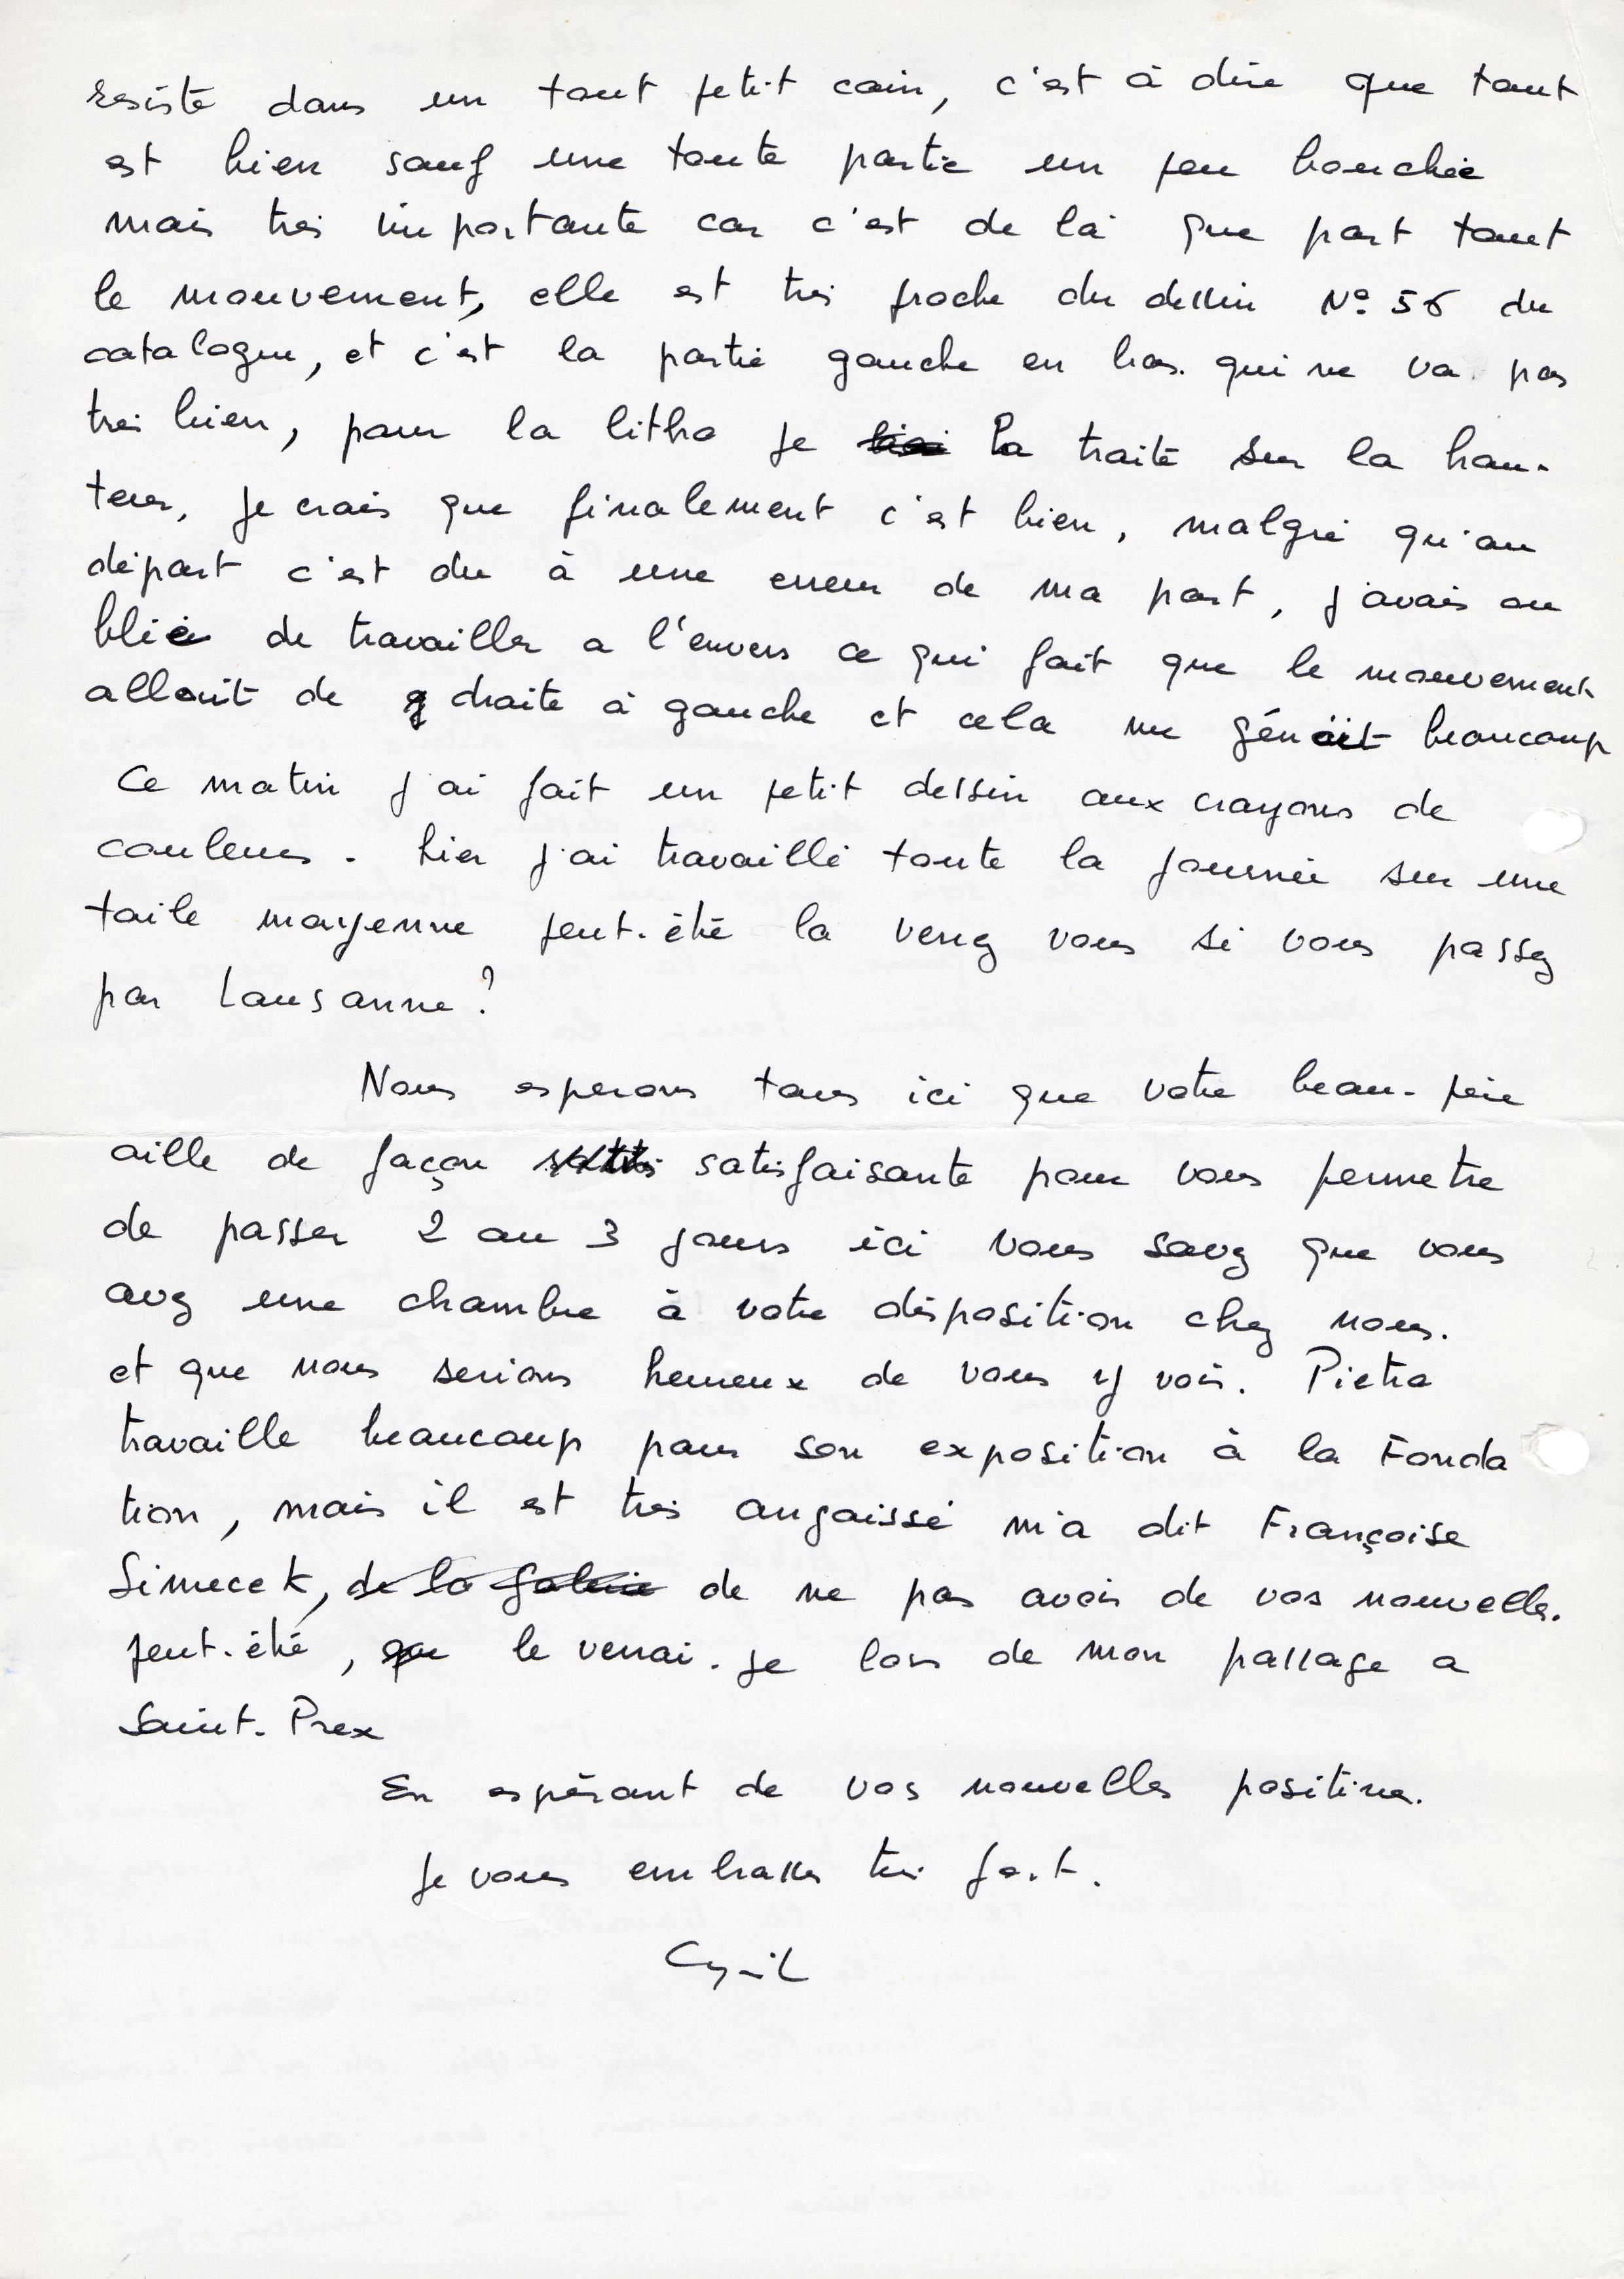 resiste dans un tout petit coin, c'est à dire que tout
est bien sauf une toute partie un peu bouchée
mais très importante car c'est de là que part tout
le mouvement, elle est très proche du dessin N° 56 du
catalogue, et c'est la partie gauche en bas. qui ne va pas
très bien, pour la litho je la traite sur la hau-
teur, je crois que finalement c'est bien, malgré qu'au
départ c'est du à une erreur de ma part, j'avais ou
bliée de travailler a l'envers ce qui fait que le mouvement
allait de g droite à gauche et cela me génait beaucoup
Ce matin j'ai fait un petit dessin aux crayons de
couleurs. hier j'ai travaillé toute la journée sur une
toile moyenne peut-être la verez vous si vous passez
par Lausanne?
Nous esperons tous ici que votre beau-père
aille de façon satisfaisante pour vous permetre
de passer 2 ou 3 jours ici vous savez que vous
avez une chambre à votre disposition chez nous.
et que nous serions heureux de vous y voir. Pietro
travaille beaucoup pour son exposition à la Fonda
tion, mais il est très angoissé m'a dit Françoise
Simecek, de la galerie de ne pas avoir de vos nouvelles.
peut-être, que le verrai-je lors de mon passage a
Saint-Prex
En espérant de vos nouvelles positives.
Je vous embrasse très fort.
Cyril